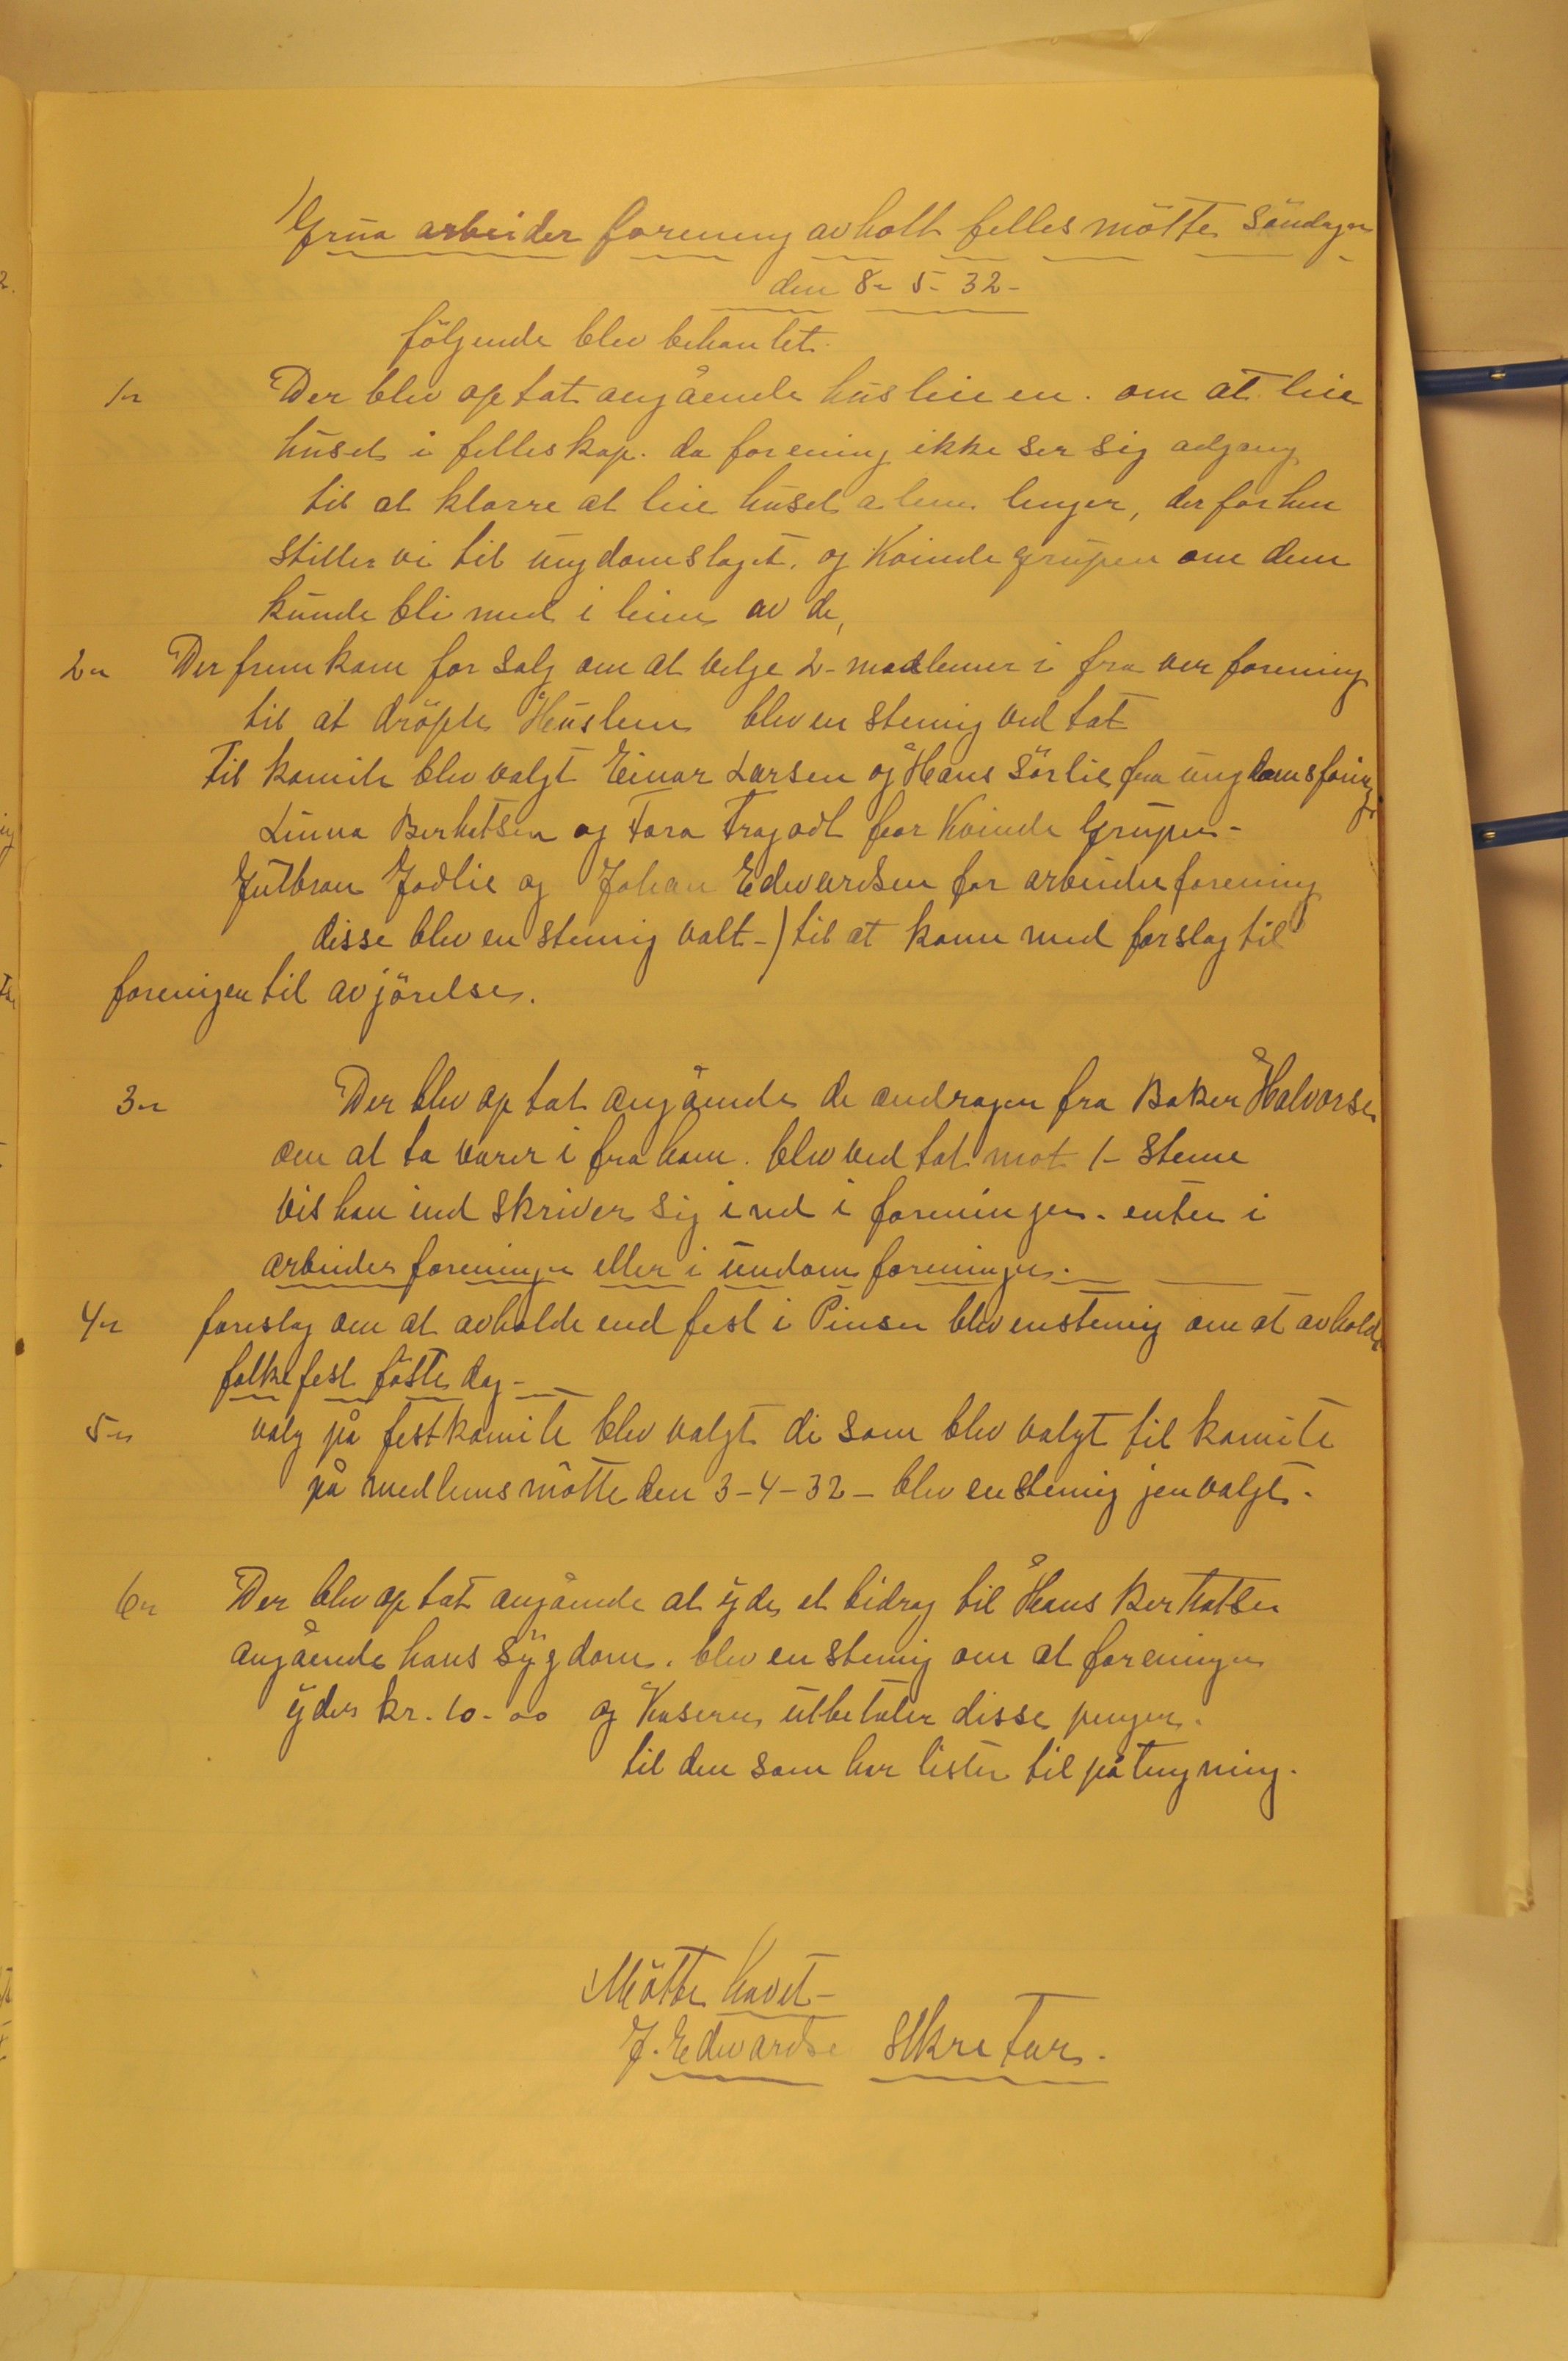 Grua arbeider forening avholt felles møtte Søndagen
den 8- 5- 32-
følgende blev behantet.
1- Der blev optat angående husleien. om at leie
huset i felleskap. da forening ikke ser sig adgang
til at klarre at leie huset alene lenger, der for hen
stiller vi til ungdomslaget. og Kvinde grupen om dem
kunde bli med i leien av de,
2- Der frem kom for salg om at velge 2- medlemer i fra ver forening
til at drøpte Husleien blev en stemig ved tat
Til komite blev valgt Einar Larsen og Hans Sørlie fra ungdoms foring
Linna Berhetsen og Tora Tragodt for Kvinde Grupen-
Gulbran Jodlie og Johan Edwardsen for arbeider forening
disse blev en stemig valt-) til at kome med forslag til
foreningen til avjørelse.
3- Der blev op tat angående de andragen fra Baker Halvorsen
om at ta varer i fra ham. blev ved tat mot 1- steme
vis han ind skriver sig ind i foreningen. enten i
arbeider foreningen eller i undoms foreningen.
4- foreslag om at avholde end fest i Pinsen blev enstemig om at avholde
folkefest føste dag-
5- valg på festkomite blev valgt di som blev valgt til komite
på medlems møtte den 3-4-32- blev en stemig jen valgt.
6- Der blev op tat angående at yde et bidrag til Hans Berhatsen
angående hans sygdom. blev en stemig om at foreningen
yder kr. 10-00 og Kaseren utbetaler disse penger.
til den som har listen til påtengning.
Møtte havet-
J. Edwardse Sekretær.